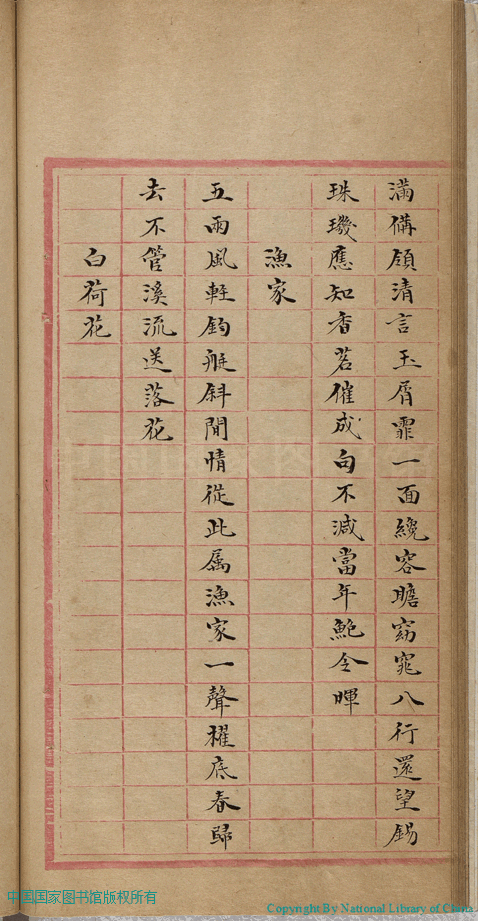 滿備領清言玉屑霏一面纔容瞻窈窕八行還望錫
珠璣應知香茗催成句不減當年鮑令暉
漁家
五兩風輕釣艇斜閒情從此属漁家一聲櫂底春歸
去不管溪流送落花
白荷花
中国国家图书馆版权所有
Copyright By National Library of China